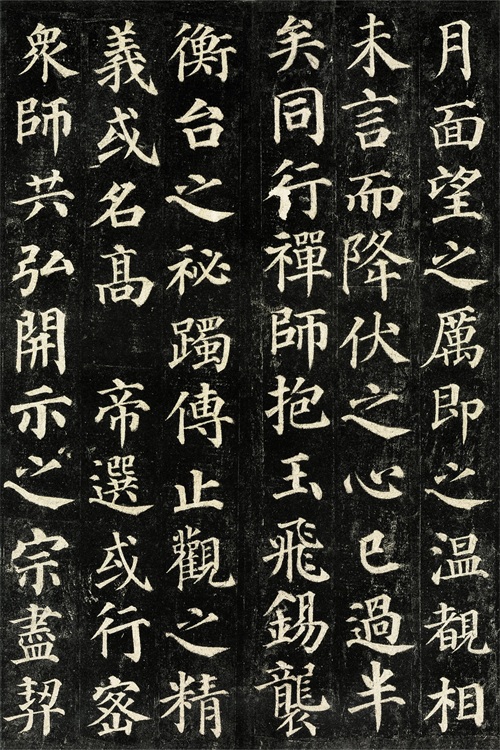 月面望之厲即之温覩相
未言而降伏之心已過半
矣同行禪師抱玉飛錫襲
衡台之祕躅傳止觀之精
義或名高 帝選或行密
衆師共弘開示之宗盡契